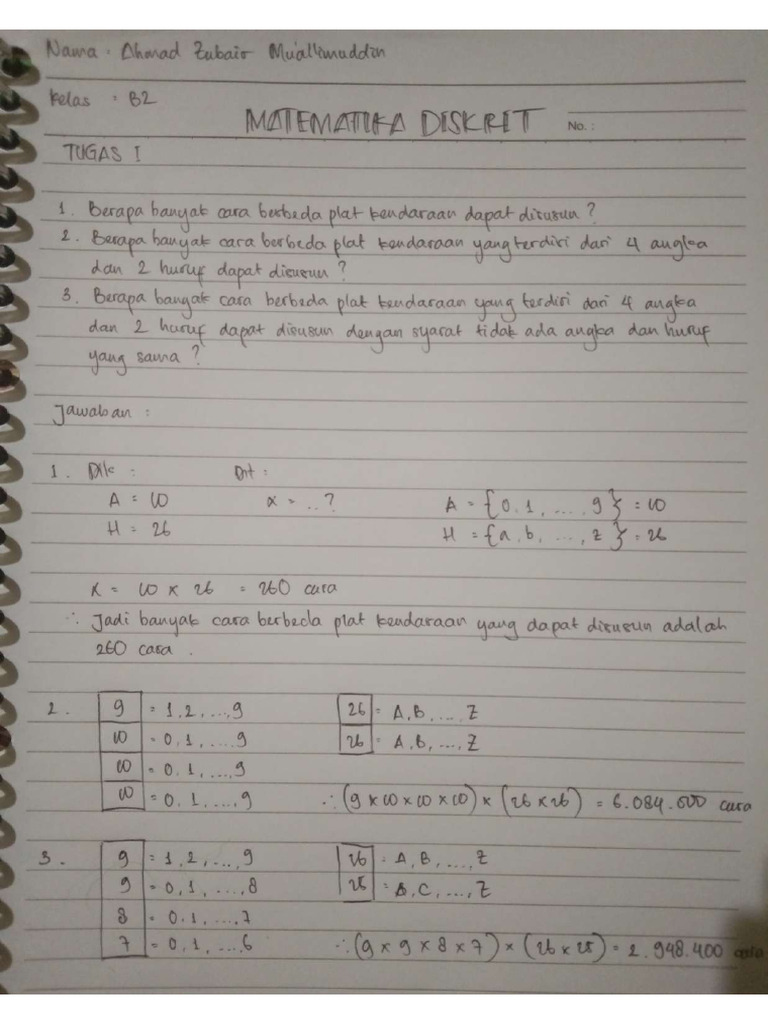 Nama : Ahmad Zubair Mu'allimuddin
Kelas : B2
MATEMATIKA DISKRIT No. :
TUGAS I
1. Berapa banyak cara berbeda plat kendaraan dapat disusun ?
2. Berapa banyak cara berbeda plat kendaraan yang terdiri dari 4 angka
dan 2 huruf dapat disusun ?
3. Berapa banyak cara berbeda plat kendaraan yang terdiri dari 4 angka
dan 2 huruf dapat disusun dengan syarat tidak ada angka dan huruf
yang sama ?
Jawaban :
1. Dik : Dit :
A = 10 x = ..? A = {0, 1, ..., 9} = 10
H = 26 H = {a, b, ..., z} = 26
x = 10 x 26 = 260 cara
∴ Jadi banyak cara berbeda plat kendaraan yang dapat disusun adalah
260 cara .
2. 9 = 1, 2, ..., 9 26 = A, B, ..., Z
10 = 0, 1, ... 9 26 = A, B, ..., Z
10 = 0, 1, ..., 9
10 = 0, 1, ..., 9 ∴ (9 x 10 x 10 x 10) x (26 x 26) = 6.084.000 cara
3. 9 = 1, 2, ..., 9 26 = A, B, ..., Z
9 = 0, 1, ..., 8 25 = B, C, ..., Z
8 = 0, 1, ..., 7
7 = 0, 1, ..., 6 ∴ (9 x 9 x 8 x 7) x (26 x 25) = 2.948.400 cara